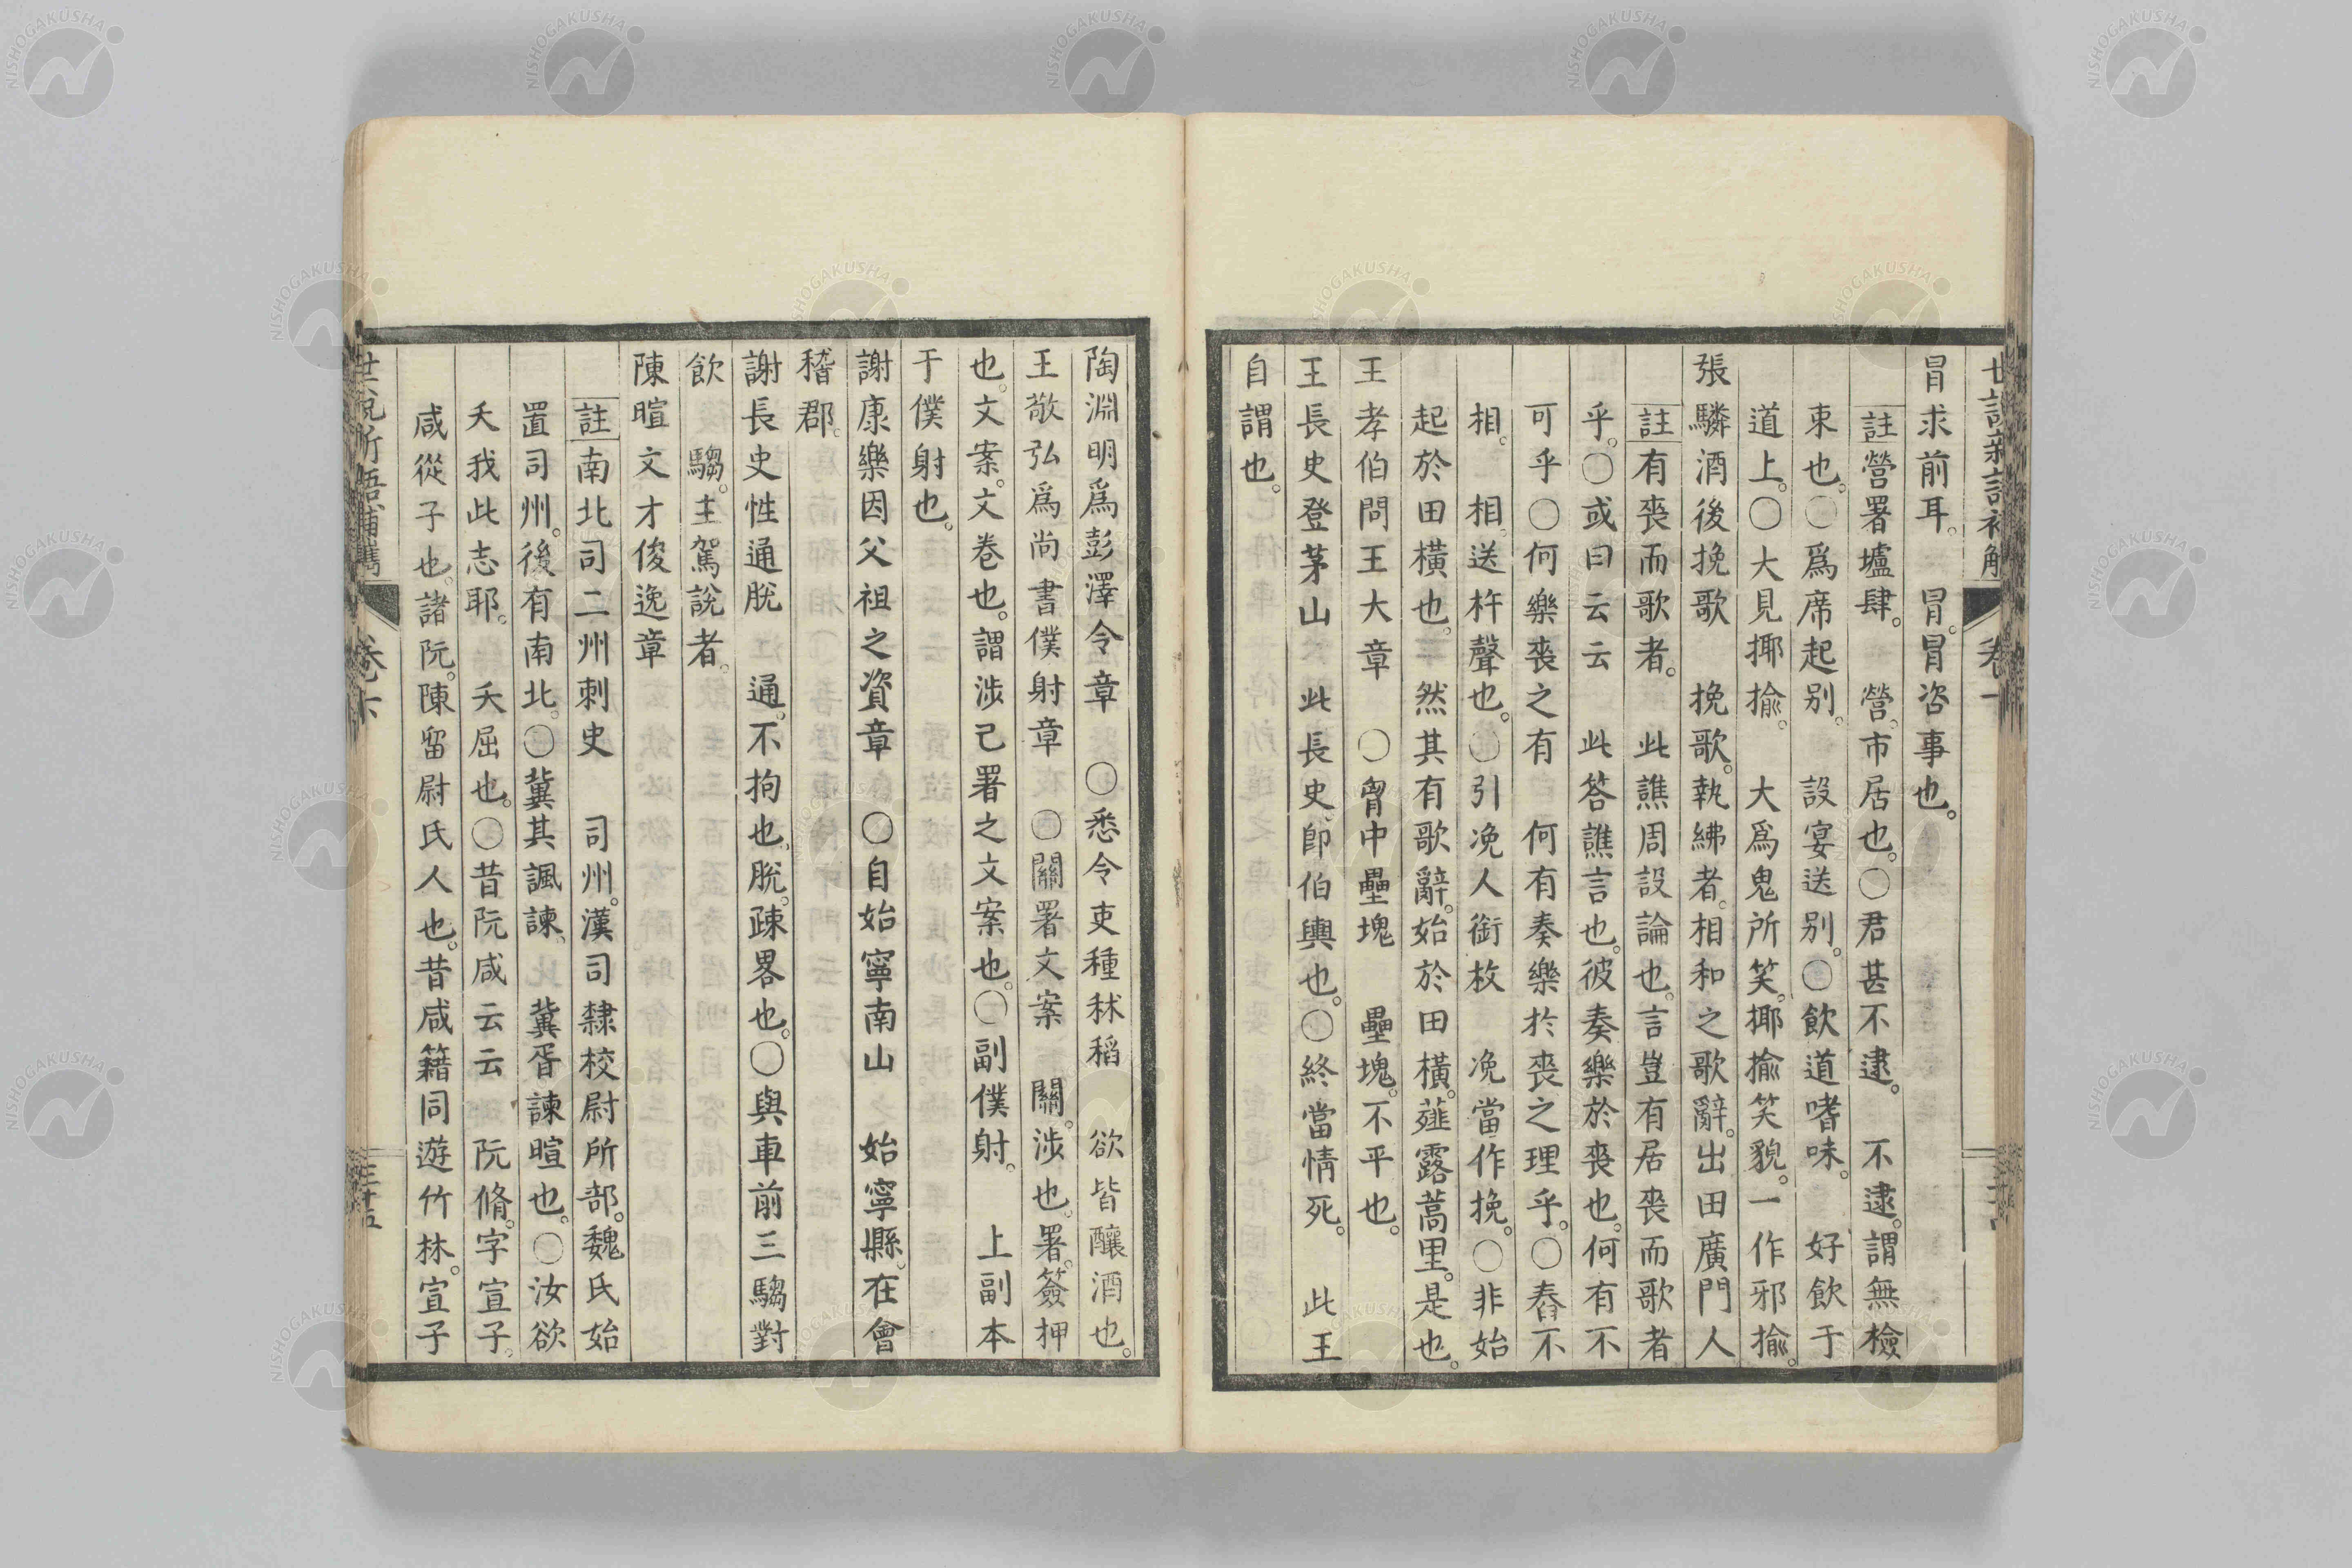 冒求前耳。　冒。冒咨事也。
註營署壚肆。　營。市居也。〇君甚不逮。　不逮。謂無檢
束也。〇爲席起別。　設宴送別。〇飲道嗜味。　好飲于
道上。〇大見揶揄。　大爲鬼所笑。揶揄笑貌。一作邪揄。
張驎酒後挽歌　挽歌。執紼者。相和之歌辭。出田廣門人
註有喪而歌者。　此譙周設論也。言豈有居喪而歌者
乎。〇或曰云云　此答譙言也。彼奏樂於喪也。何有不
可乎〇何樂喪之有　何有奏樂於喪之理乎。〇舂不
相。　相。送杵聲也。〇引凂人銜枚　凂當作挽。〇非始
起於田橫也。　然其有歌辭。始於田橫。薤露蒿里。是也。
王孝伯問王大章　〇胷中壘塊　壘塊。不平也。
王長史登茅山　此長史。卽伯輿也。〇終當情死。　此王
自謂也。
陶淵明爲彭澤令章　〇悉令吏種秫稻　欲皆釀酒也。
王敬弘爲尚書僕射章　〇關署文案　關。涉也。署。簽押
也。文案。文卷也。謂涉己署之文案也。〇副僕射。　上副本
于僕射也。
謝康樂因父祖之資章　〇自始寧南山　始寧縣。在會
稽郡。
謝長史性通脫　通。不拘也。脫。疎畧也。〇與車前三騶對
飲　騶。主駕說者。
陳暄文才俊逸章
註南北司二州刺史　司州。漢司隸校尉所部。魏氏始
置司州。後有南北。〇冀其諷諫。　冀胥諫暄也。〇汝欲
夭我此志耶。　夭屈也。〇昔阮咸云云　阮脩。字宣子。
咸從子也。諸阮。陳留尉氏人也。昔咸籍同遊竹林。宣子
卷六